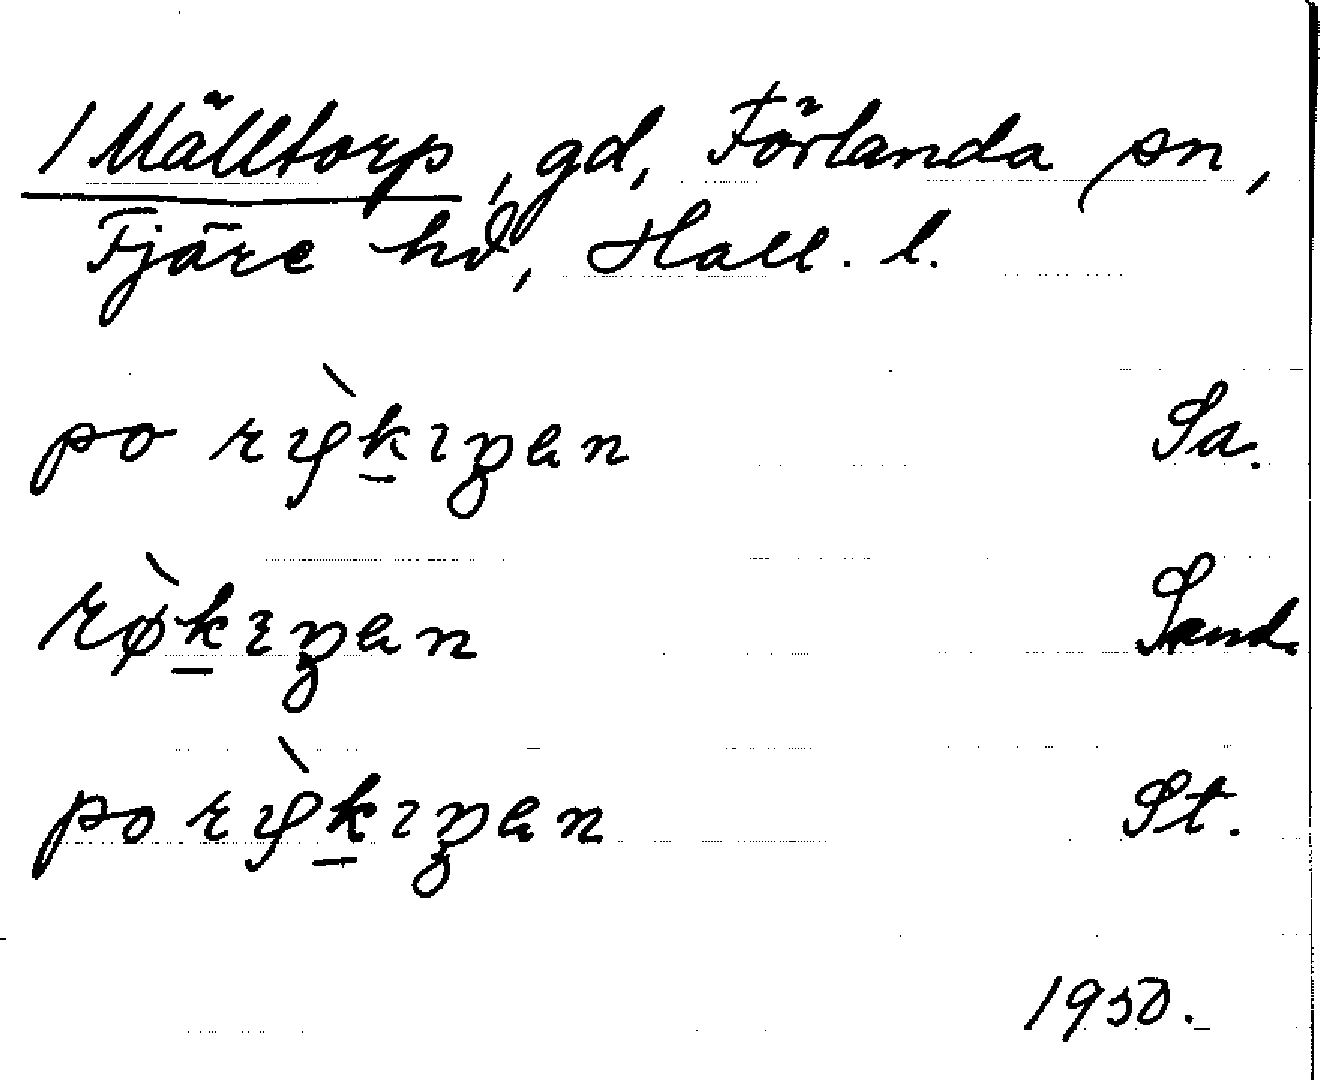 1 Mälltorp, gd, Förlanda sn,
Fjäre hd, Hall. l.
po Sa.
Sand.
po St.
1950.